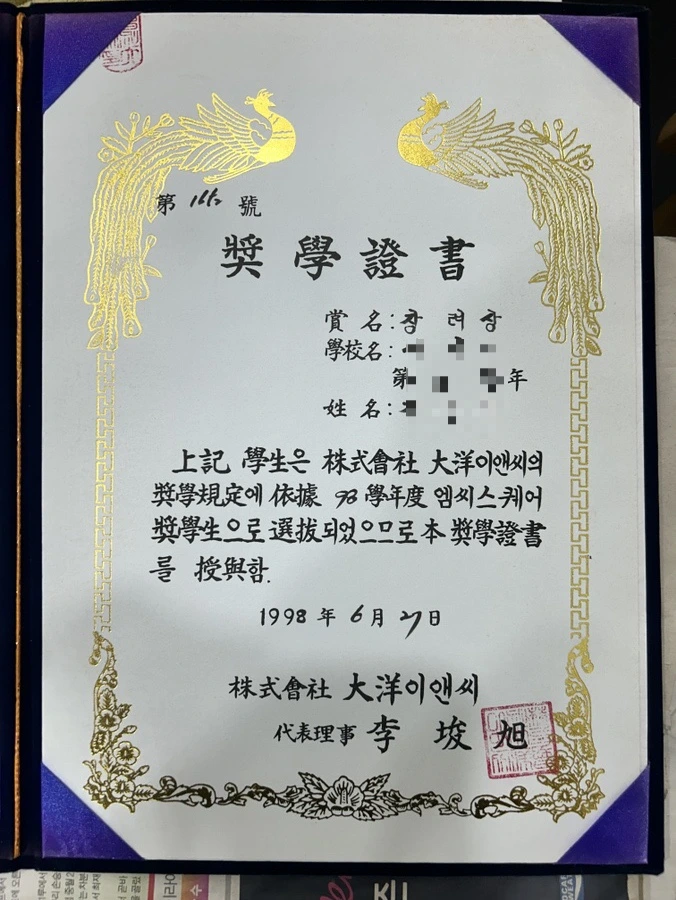 第 号 號
獎學證書
賞 名 : 장 려 상
學校名 :
第 年
姓 名 :
上記 學生은 株式會社 大洋이앤씨의
獎學規定에 依據 98 學年度 엠씨스퀘어
獎學生으로 選拔되었으므로 本 獎學證書
를 授與함.
1998 年 6 月 27 日
株式會社 大洋이앤씨
代表理事 李 埈 旭